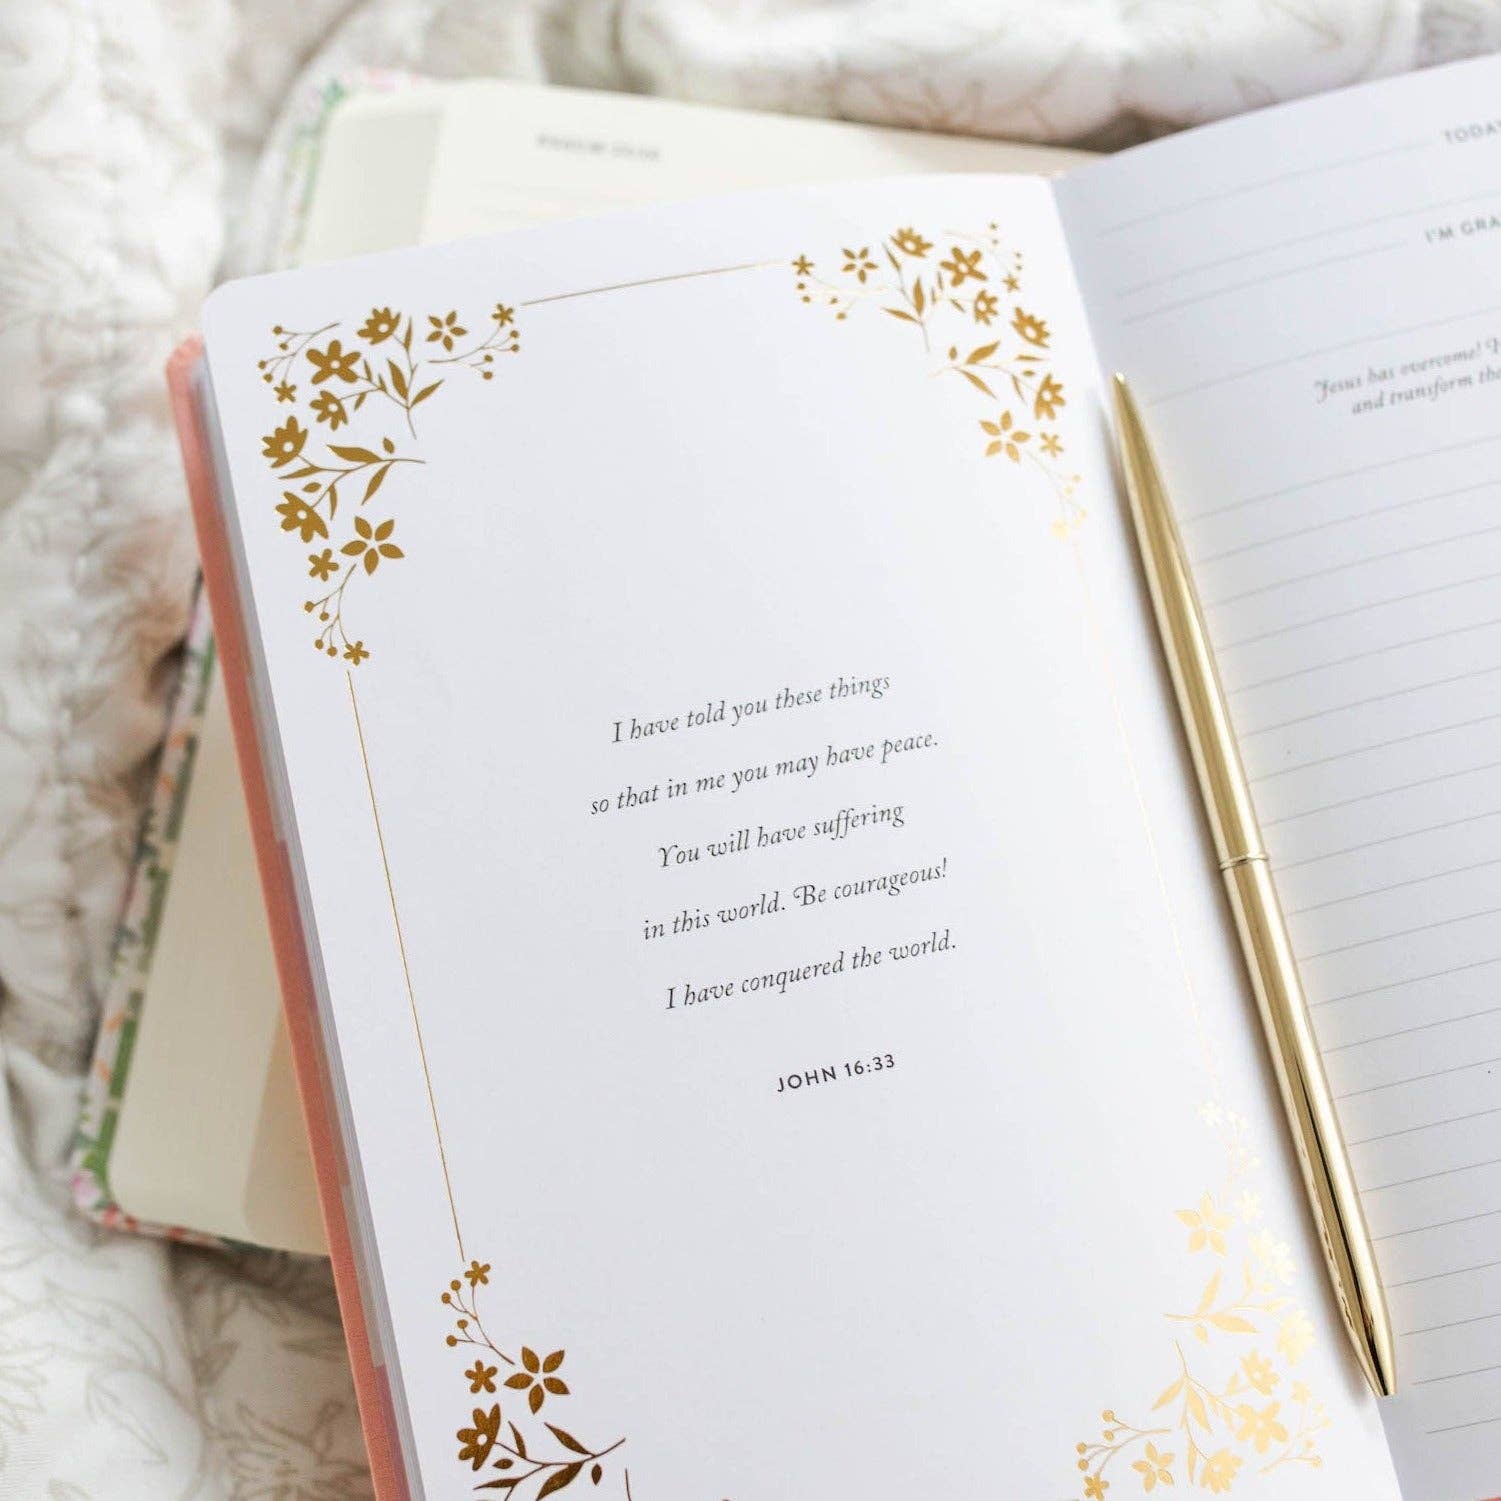 I have told you these things
so that in me you may have peace.
You will have suffering
in this world. Be courageous!
I have conquered the world.
JOHN 16:33
I'M
Jesus has overcome!
and transform